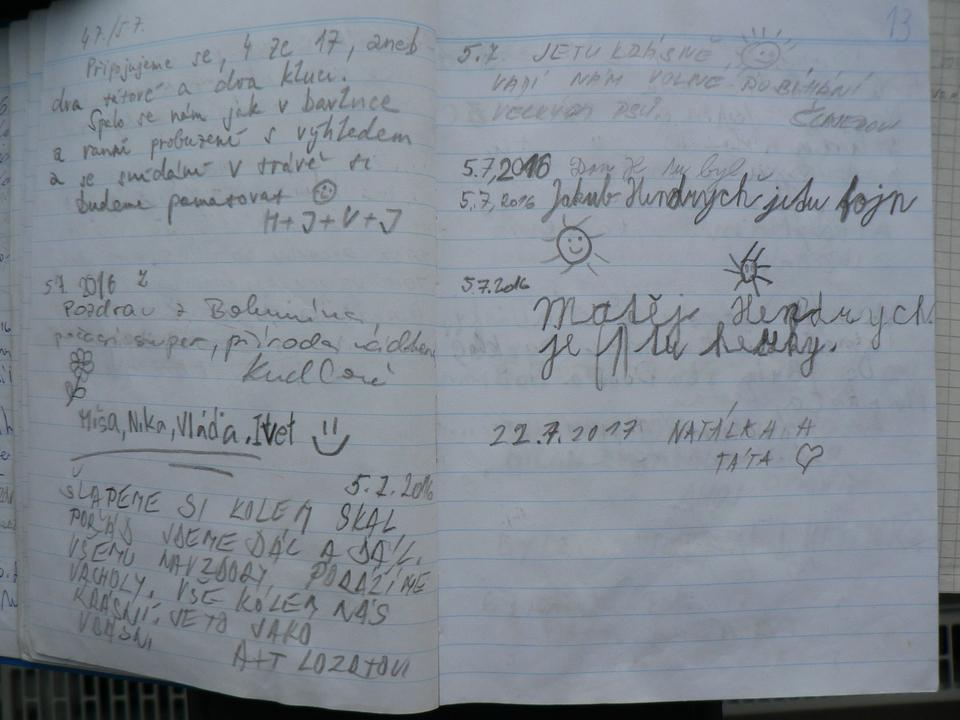 47./57.
Připojujeme se, 4 ze 17, aneb
dva tátové a dva kluci.
Spalo se nám jak v bavlnce
a ranní probuzení s výhledem
a se snídaní v trávě si
budeme pamatovat
H+J+V+J
5.7. 2016
Pozdrav z Bohumína,
počasí super, příroda nádherná
Míša, Nika, Vláďa, Ivet
5.7.2016
ŠLAPEME SI KOLEM SKAL
POŘÁD JDEME DÁL A DÁL,
VŠEMU NAVZDORY, PORAZÍME
VÁCHOLY. VŠE KOLEM NÁS
KRÁSNÍ, JE TO JAKO
V BÁSNI
A+T
13
5.7 JE TU KRÁSNĚ,
VADÍ NÁM VOLNÉ POBÍHÁNÍ
VELKÝCH PSŮ.
5.7.2016 Dan H. tu byl
5.7.2016 Jakub Hendrych je tu fajn
5.7.2016
Matěj Hendrych
je tu
22.7.2017 NATÁLKA A
TÁTA